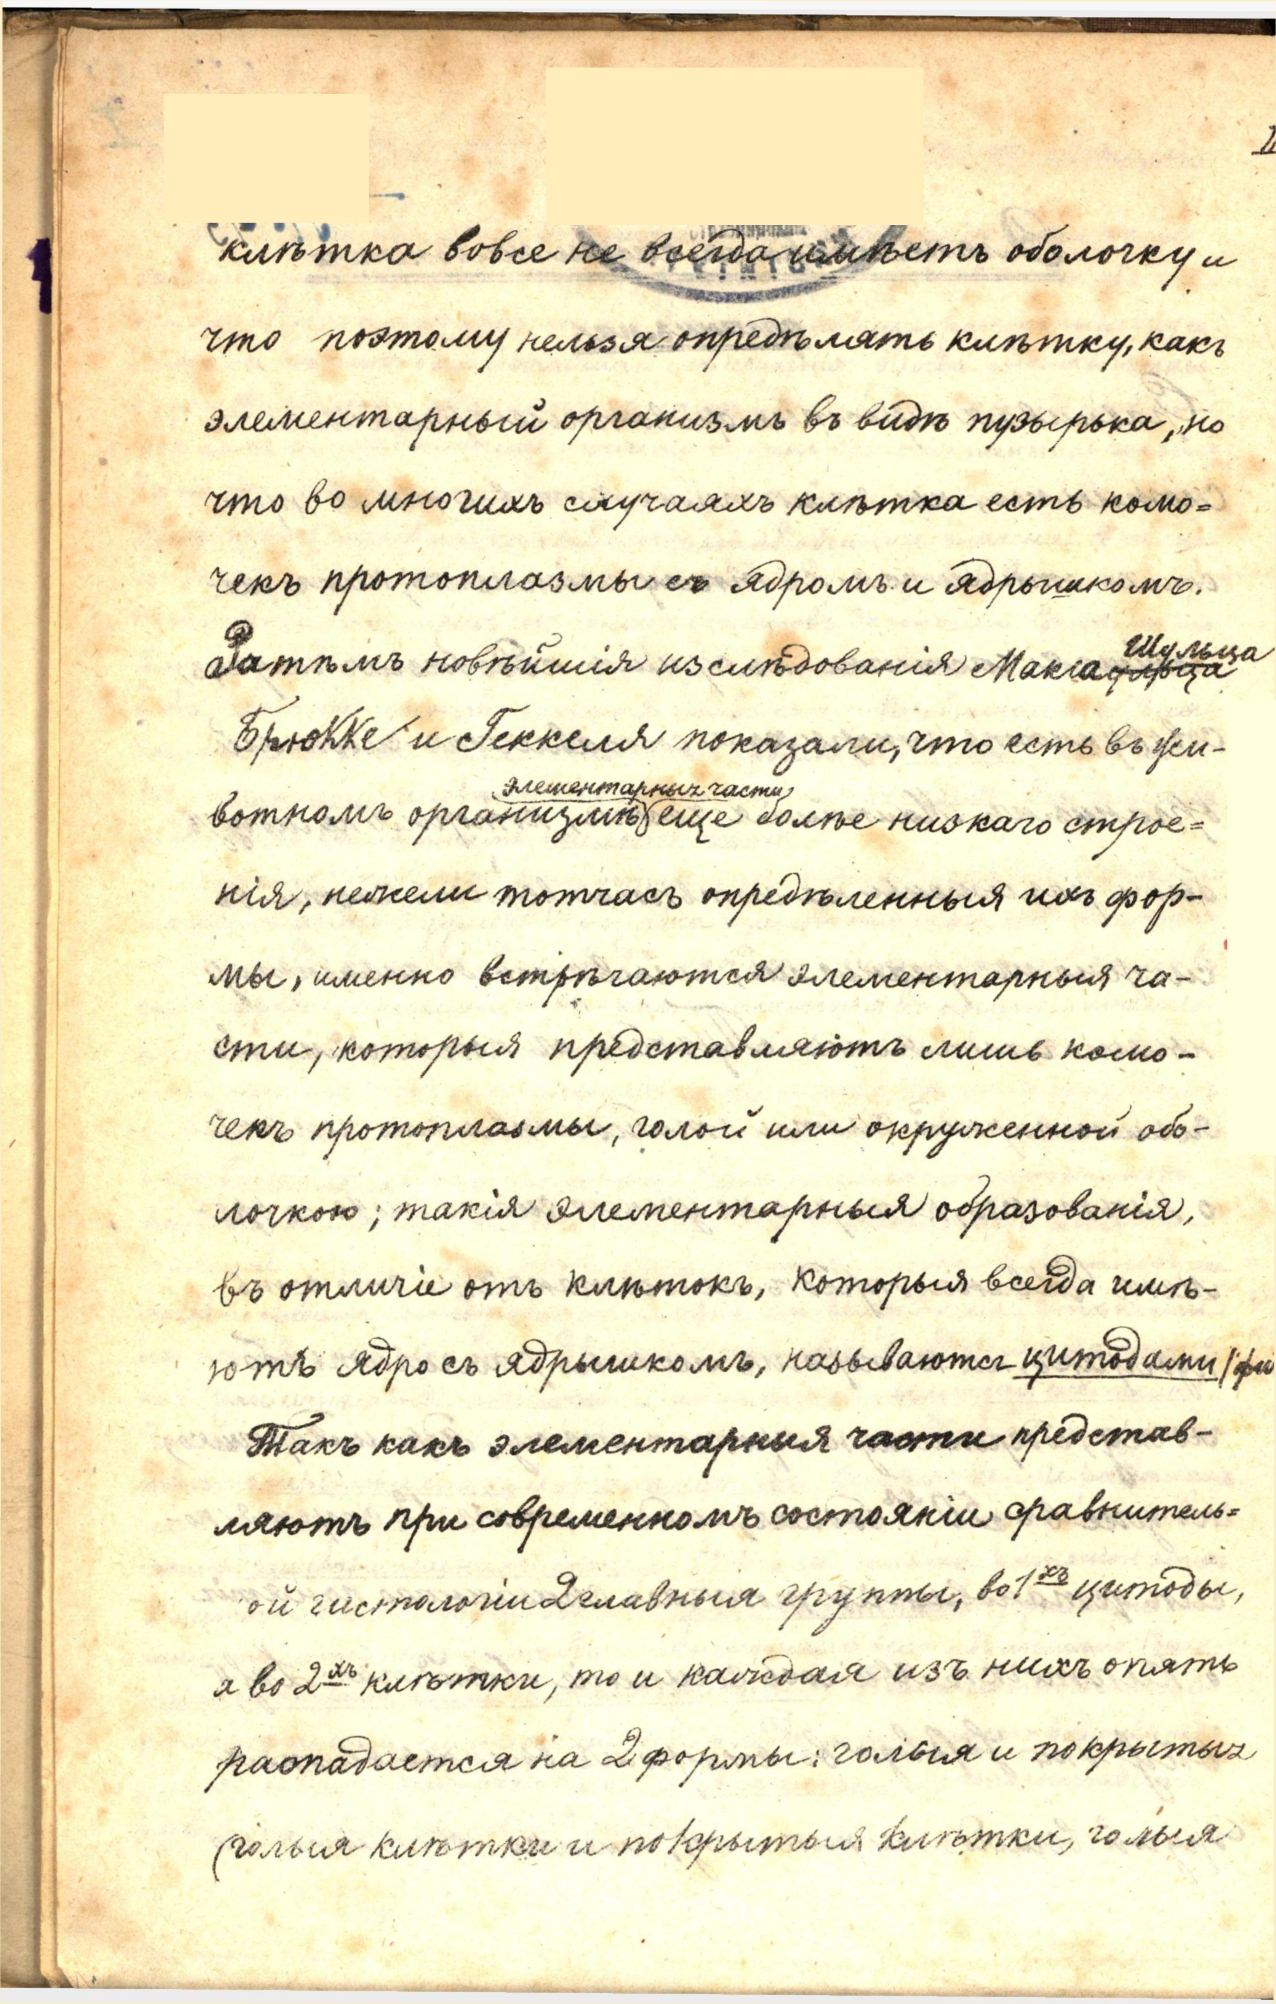 клѣтка вовсе не всегда имѣетъ оболочку и
что поэтому нельзя опредѣлять клѣтку, какъ
элементарный организмъ въ видѣ пузырька, но
что во многихъ случаяхъ клѣтка есть комо=
чекъ протоплазмы съ ядромъ и ядрышкомъ.
Затѣмъ новѣйшія изслѣдованія Макса Шульца
Брюкке и Геккеля показали, что есть въ жи-
элементарныя части
вотномъ организмѣ еще болѣе низкаго строе=
нія, нежели тотчасъ опредѣленныя ихъ фор-
мы, именно встрѣчаются элементарныя ча-
сти, которыя представляютъ лишь комо-
чекъ протоплазмы, голой или окруженной обо-
лочкою; такія элементарныя образованія,
въ отличіе отъ клѣтокъ, которыя всегда имѣ-
ютъ ядро съ ядрышкомъ, называются цитодами
Такъ какъ элементарныя части представ-
ляютъ при современномъ состояніи сравнитель=
ой гистологіи 2 главныя группы, во 1хъ цитоды,
а во 2хъ клѣтки, то и каждая изъ нихъ опять
распадается на 2 формы: голыя и покрытыя
(голыя клѣтки и покрытыя клѣтки, голыя